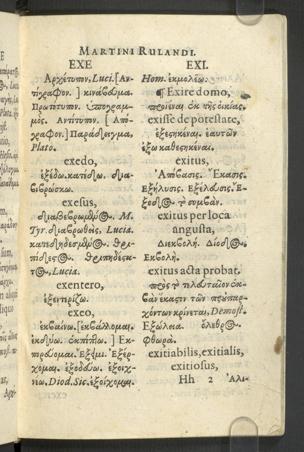 MARTINI RULANDI.
EXE
Ἀρχέτυπον, Luci. [Ἀν-
τίγραφον.] κινάβωμα.
Πρωτότυπον. ὑπογραμ-
μός. Ἀντίτυπον. [Ἀπό-
γραφον.] Παράδειγμα,
Plato.
exedo,
ἐξέδω. κατέδω. δια-
βιβρώσκω.
exesus,
M.
Tyr. διαβρωθείς, Lucia.
Lucia.
exentero,
ἐξεντερίζω.
exeo,
ἐκβαίνω. [ἐκβάλλομαι.
ἐκδύω. ἐκπίπτω.] Ἐκ-
πορεύομαι. Ἔξειμι. Ἐξέρ-
χομαι. ἐξοδεύω. ἐξοίχ-
νω, Diod. Sic. ἐξοίχομαι.
EXI.
Hom. ἐκμολέω.
¶ Exire domo,
προϊέναι ἐκ τῆς οἰκίας.
exisse de potestate,
ἐξεστηκέναι. ἑαυτῶν
ἔξω καθεστηκέναι.
exitus,
Ἀπόβασις. Ἔκβασις.
Ἐξήλυσις. Ἐξέλασις. Ἔ-
ξοδος. τὸ συμβάν.
exitus per loca
angusta,
Διεκβολή. Δίοδος.
Ἐκβολή.
exitus acta probat.
πρὸς τὸ τελευταῖον ἐκ-
βὰν ἕκαστον τῶν προϋπαρ-
χόντων κρίνεται, Demost.
Ἐξώλεια. ὄλεθρος.
Φθορά.
exitiabilis, exitialis,
exitiosus,
Hh 2 Ἀλι-